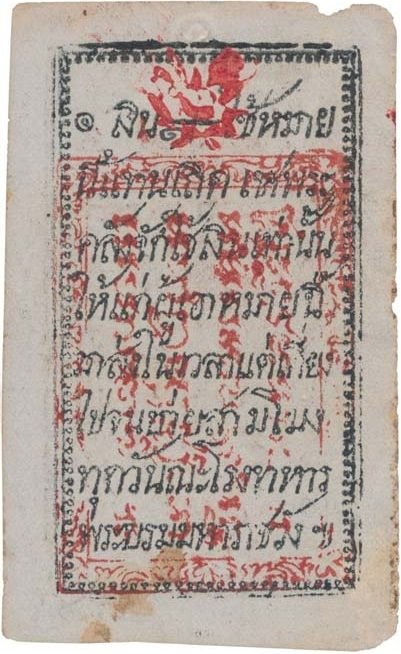 ๏ สิน ใช้หมาย
นี้แทนเถิด
คลังจักใช้สินเท่านั้น
ให้แก่ผู้เอาหมายนี้
มาส่งในเวลาแต่เที่ยง
ไปจนบ่ายสามโมง
ทุกวันณะโรงทาหาร
พระบรมมหาราชวัง ๚